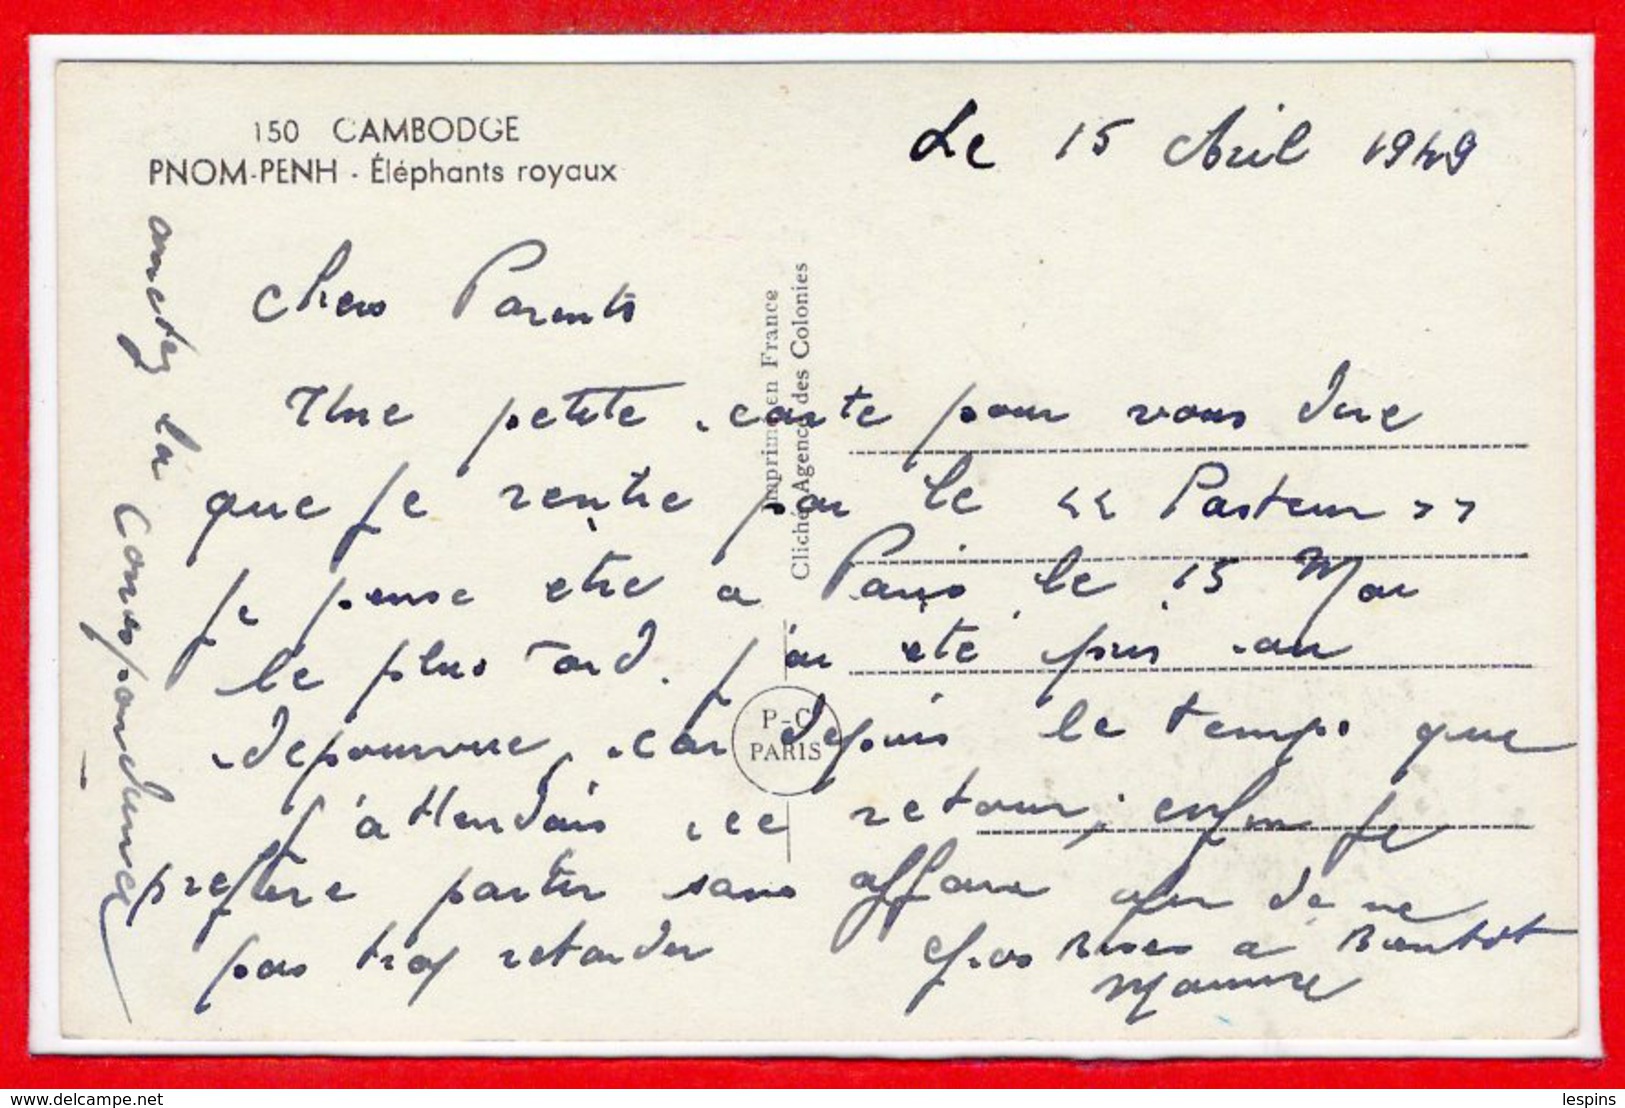 150 CAMBODGE
PNOM-PENH - Éléphants royaux
Le 15 Avril 1949
Chers Parents
Une petite carte pour vous dire
que je rentre par le « Pasteur »
je pense etre a Paris le 15 Mai
le plus tard. j'ai eté pris au
depourvue, car depuis le temps que
j'attendais ce retour; enfin je
prefere partir sans affaire afin de ne
pas trop retarder
Gros Bises a Bientot
Maurice
arretez la Correspondance
Imprimé en France
Cliché Agence des Colonies
P-C
PARIS
delcampe.net
lespins